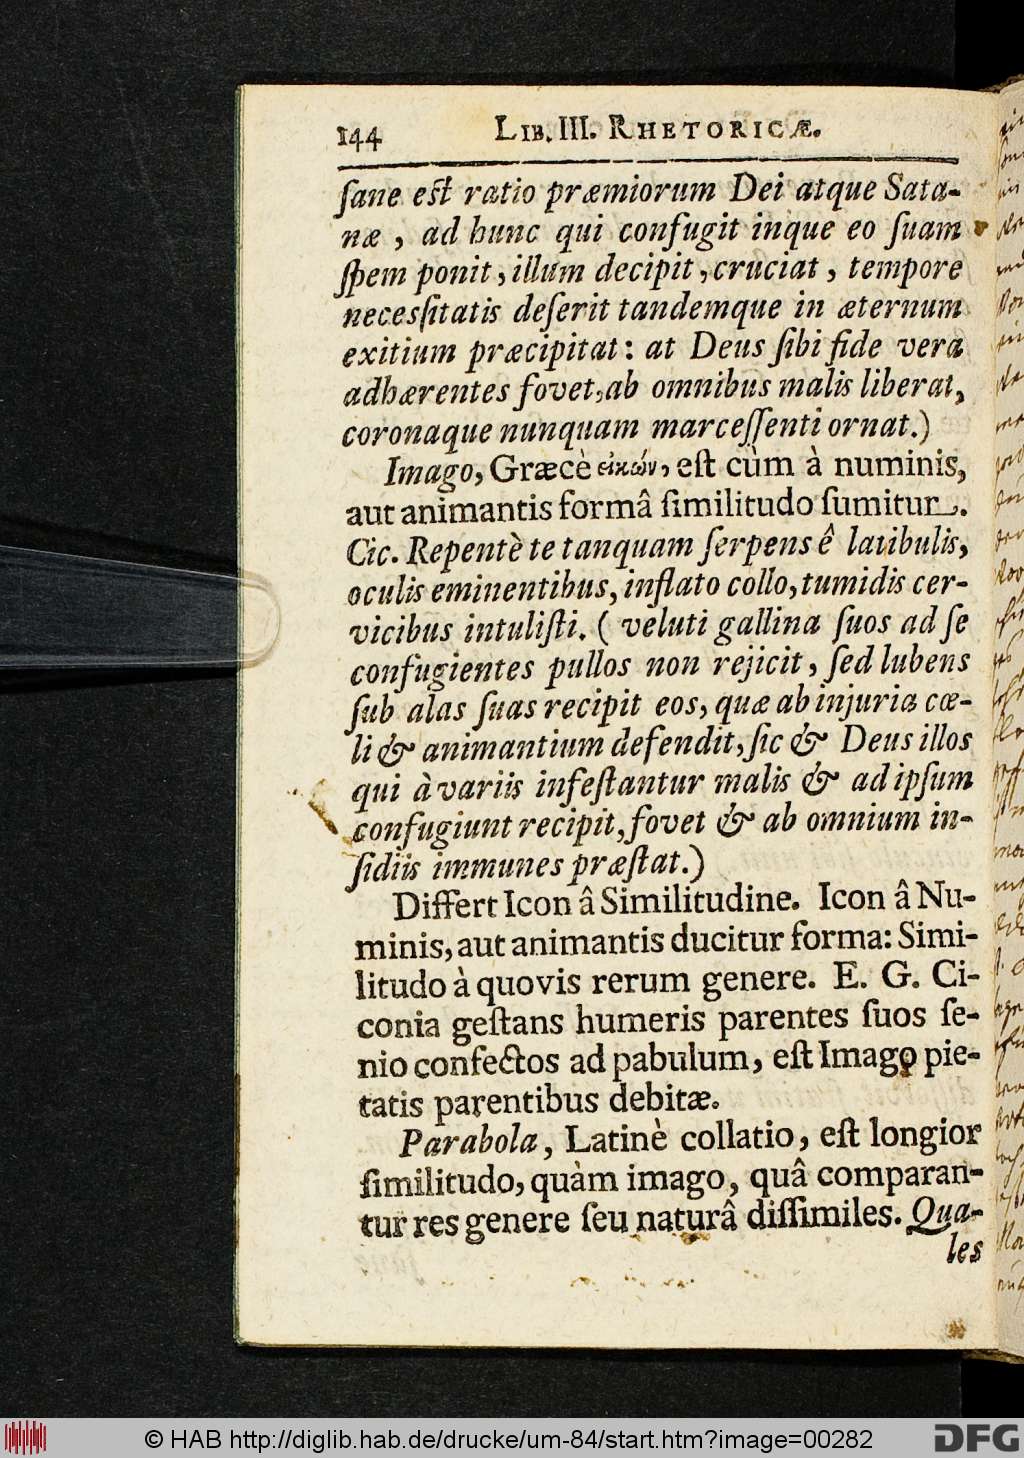 144 LIB. III. RHETORICÆ.
ſane eſt ratio præmiorum Dei atque Sata-
næ , ad hunc qui confugit inque eo ſuam
ſpem ponit, illum decipit, cruciat, tempore
neceſſitatis deſerit tandemque in æternum
exitium præcipitat: at Deus ſibi fide vera
adhærentes fovet, ab omnibus malis liberat,
coronaque nunquam marceſſenti ornat.)
Imago, Græcè εἰκών, eſt cùm à numinis,
aut animantis formâ ſimilitudo ſumitur.
Cic. Repentè te tanquam ſerpens ê latibulis,
oculis eminentibus, inflato collo, tumidis cer-
vicibus intuliſti. ( veluti gallina ſuos ad ſe
confugientes pullos non rejicit, ſed lubens
ſub alas ſuas recipit eos, quæ ab injuria cœ-
li & animantium defendit, ſic & Deus illos
qui à variis infeſtantur malis & ad ipſum
confugiunt recipit, fovet & ab omnium in-
ſidiis immunes præſtat.)
Differt Icon â Similitudine. Icon â Nu-
minis, aut animantis ducitur forma: Simi-
litudo à quovis rerum genere. E. G. Ci-
conia geſtans humeris parentes ſuos ſe-
nio confectos ad pabulum, eſt Imago pie-
tatis parentibus debitæ.
Parabola, Latinè collatio, eſt longior
ſimilitudo, quàm imago, quâ comparan-
tur res genere ſeu naturâ diſſimiles. Qua-
les
© HAB http://diglib.hab.de/drucke/um-84/start.htm?image=00282
DFG